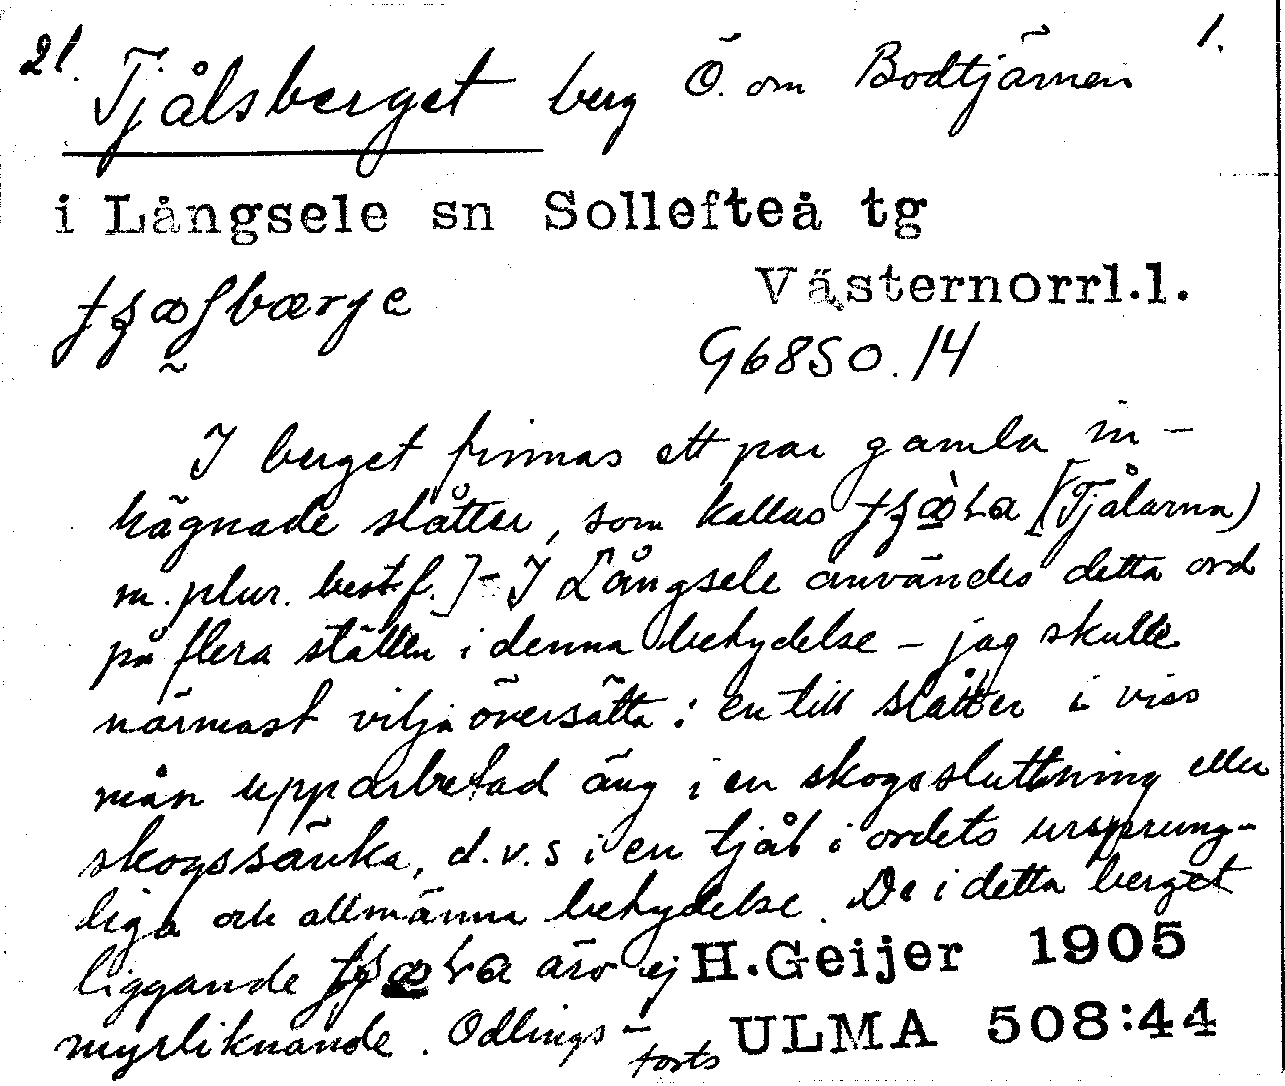 21. Tjålsberget berg Ö. om Bodtjärnen 1.
i Långsele sn Sollefteå tg
Västernorrl.l.
G6850.14
I berget finnas ett par gamla in-
hägnade slåtter, som kallas [Tjålarna)
m. plur. best. f.] - I Långsele användes detta ord
på flera ställen i denna betydelse - jag skulle
närmast vilja översätta: en till slåtter i viss
mån upparbetad äng i en skogssluttning eller
skogssänka, d.v.s i en tjål i ordets ursprung-
liga och allmänna betydelse. De i detta berget
liggande äro ej H.Geijer 1905
myrliknande. Odlings- ULMA 508:44
forts